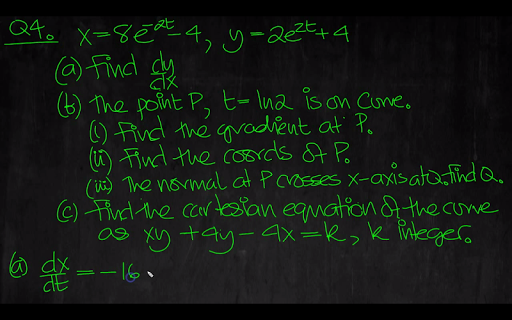 Q4. x=8e^-2t-4, y=2e^2t+4
(a) Find dy/dx
(b) The point P, t=ln2 is on Curve.
(i) Find the gradient at P.
(ii) Find the coords of P.
(iii) The normal at P crosses x-axis at Q. Find Q.
(c) Find the cartesian equation of the curve
as xy +4y-4x=k, k integer.
(a) dx/dt = -16